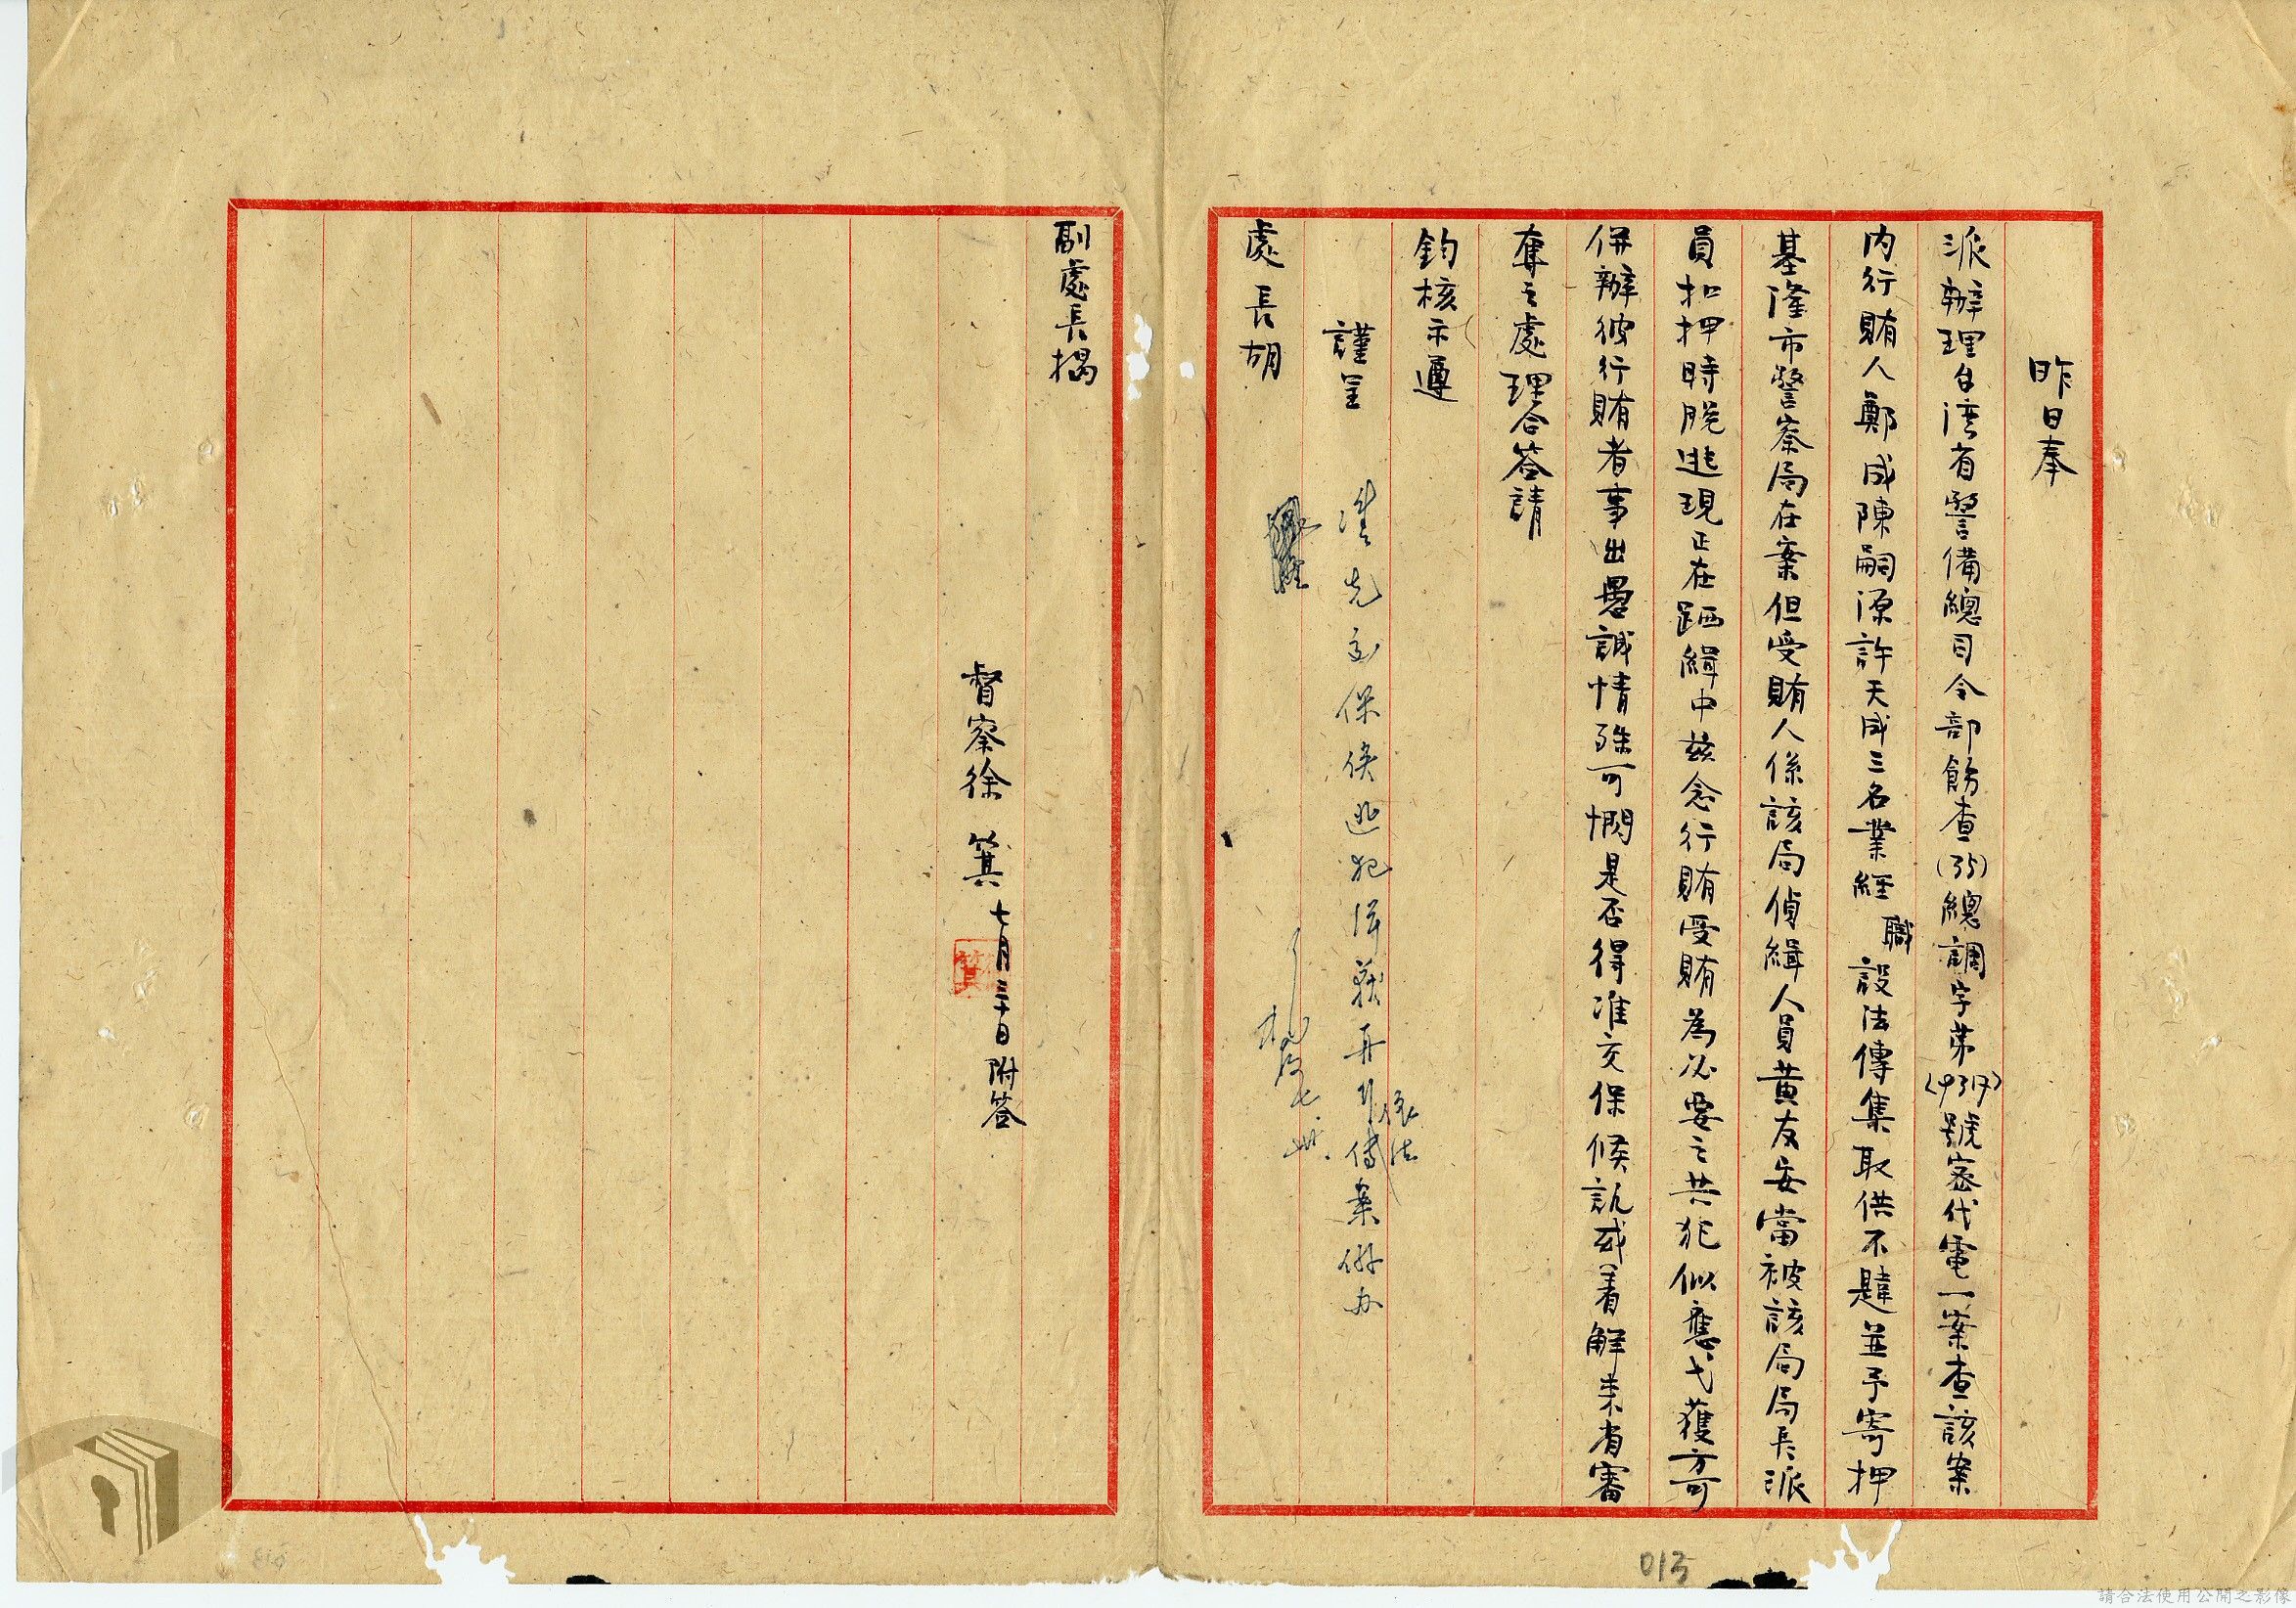 昨日奉
派辦理台湾省警備總司令部飭查(35)總調字第(9317)號密代電一案查該案
内行賄人鄭成陳嗣源許天成三名業經職設法傳集取供不韙並予寄押
基隆市警察局在案但受賄人係該局偵緝人員黃友安當被該局局長派
員扣押時脱逃現正在跴緝中茲念行賄受賄為必要之共犯似應弋獲方可
併辦彼行賄者事出愚誠情殊可憫是否得准交保候訊或着解来省審
奪之處理合签請
鈞核示遵
謹呈
處長胡
准先交保候逃犯緝獲再行依法傳案併办
七.卅.
副處長揭
督察徐箕七月三十日附签
013
請合法使用公開之影像